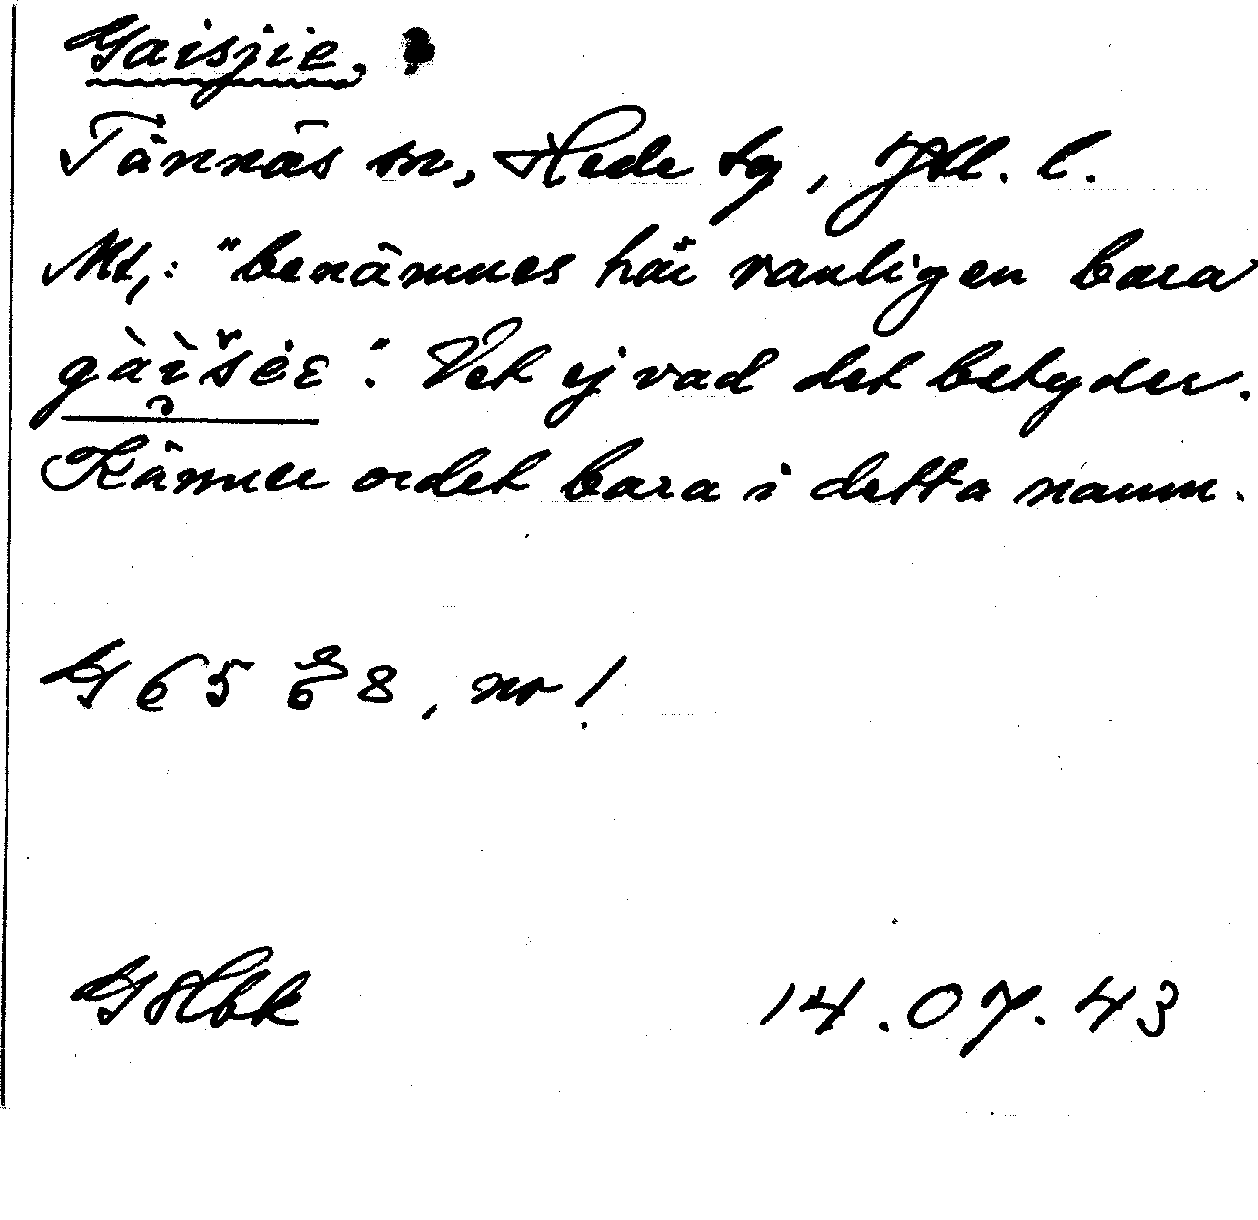 Gaisjie.
Tännäs sn, Hede tg, Jtl. l.
Mt,: "benämnes här vanligen bara
gàı̀šėɛ". Vet ej vad det betyder.
Känner ordet bara i detta namn.
G 65 8, nr 1
14.07.43